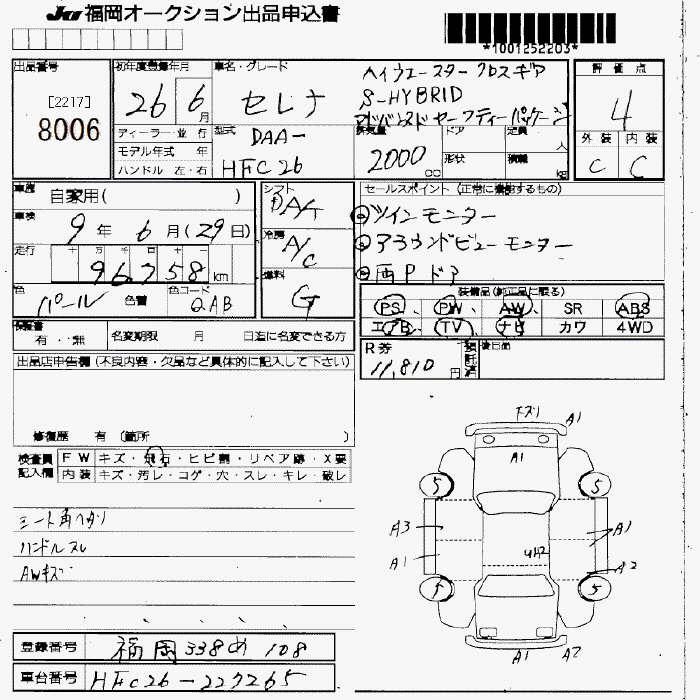 JU福岡オークション出品申込書
*1001252203*
出品番号
[2217]
8006
初年度登録年月
26年 6月
ディーラー・並行
モデル年式 年
ハンドル 左・右
車名・グレード
セレナ
ハイウェースター クロスギア
S-HYBRID
アドバンスドセーフティーパッケージ
型式
DAA-
HFC26
排気量
2000 cc
ドア
形状
定員 人
積載 kg
評価点
4
外装 内装
C C
車歴 自家用( )
車検
9年 6月(29日)
走行 十 万 千 百 十
96758 km
色
パール
色替
色コード
QAB
シフト
DA/T
冷房
A/C
燃料
G
セールスポイント (正常に機能するもの)
○ツインモニター
○アラウンドビューモニター
○両Pドア
装備品(純正品に限る)
PS、PW、AW、SR ABS
エアB TV ナビ カワ 4WD
保証書
有・無
名変期限 月 日迄に名変できる方
R券
11,810円
預託済
後日価
出品店申告欄(不良内容・欠品など具体的に記入して下さい)
修復歴 有 (箇所 )
検査員記入欄
FW キズ・飛石・ヒビ割・リペア跡・X要
内装 キズ・汚レ・コゲ・穴・スレ・キレ・破レ
シート角ヘタリ
ハンドルスレ
AWキズ
下ズリ A1
A1
5 5
A3 A1
A1 UH2 A2
5 5
A1 A2
登録番号 福岡338め108
車台番号 HFC26-227265